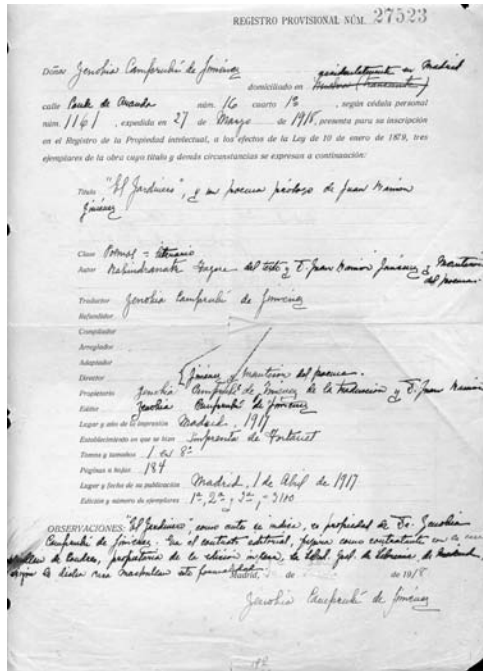 REGISTRO PROVISIONAL NÚM. 27523
Doña Zenobia Camprubí de Jiménez accidentalmente en Madrid
domiciliado en
calle Conde de Aranda núm. 16 cuarto 1º, según cédula personal
núm. 1161, expedida en 27 de Marzo de 1918, presenta para su inscripción
en el Registro de la Propiedad intelectual, a los efectos de la Ley de 10 de enero de 1879, tres
ejemplares de la obra cuyo título y demás circunstancias se expresan a continuación:
Título "El Jardinero", y un poema prólogo de Juan Ramón
Jiménez
Clase Poemas = literario
Autor Rabindranath Tagore del texto y D. Juan Ramón Jiménez y Mantecón
del poema.
Traductor Zenobia Camprubí de Jiménez
Refundidor
Compilador
Arreglador
Adaptador
Director
Jiménez y Mantecón del poema.
Propietario Zenobia Camprubí de Jiménez de la traducción y D. Juan Ramón
Editor Zenobia Camprubí de Jiménez
Lugar y año de la impresión Madrid, 1917
Establecimiento en que se hizo Imprenta de Fortanet
Tomos y tamaños 1 en 8º
Páginas u hojas 184
Lugar y fecha de su publicación Madrid, 1 de Abril de 1917
Edición y número de ejemplares 1ª, 2ª y 3ª, = 3100
OBSERVACIONES: "El Jardinero", como antes se indica, es propiedad de Da. Zenobia
Camprubí de Jiménez. En el contrato editorial, figura como contratante con la casa
de Londres, propietaria de la edición inglesa, la Socd. Gral. de Librería,
formalidad.
Madrid, de de 1918
Zenobia Camprubí de Jiménez